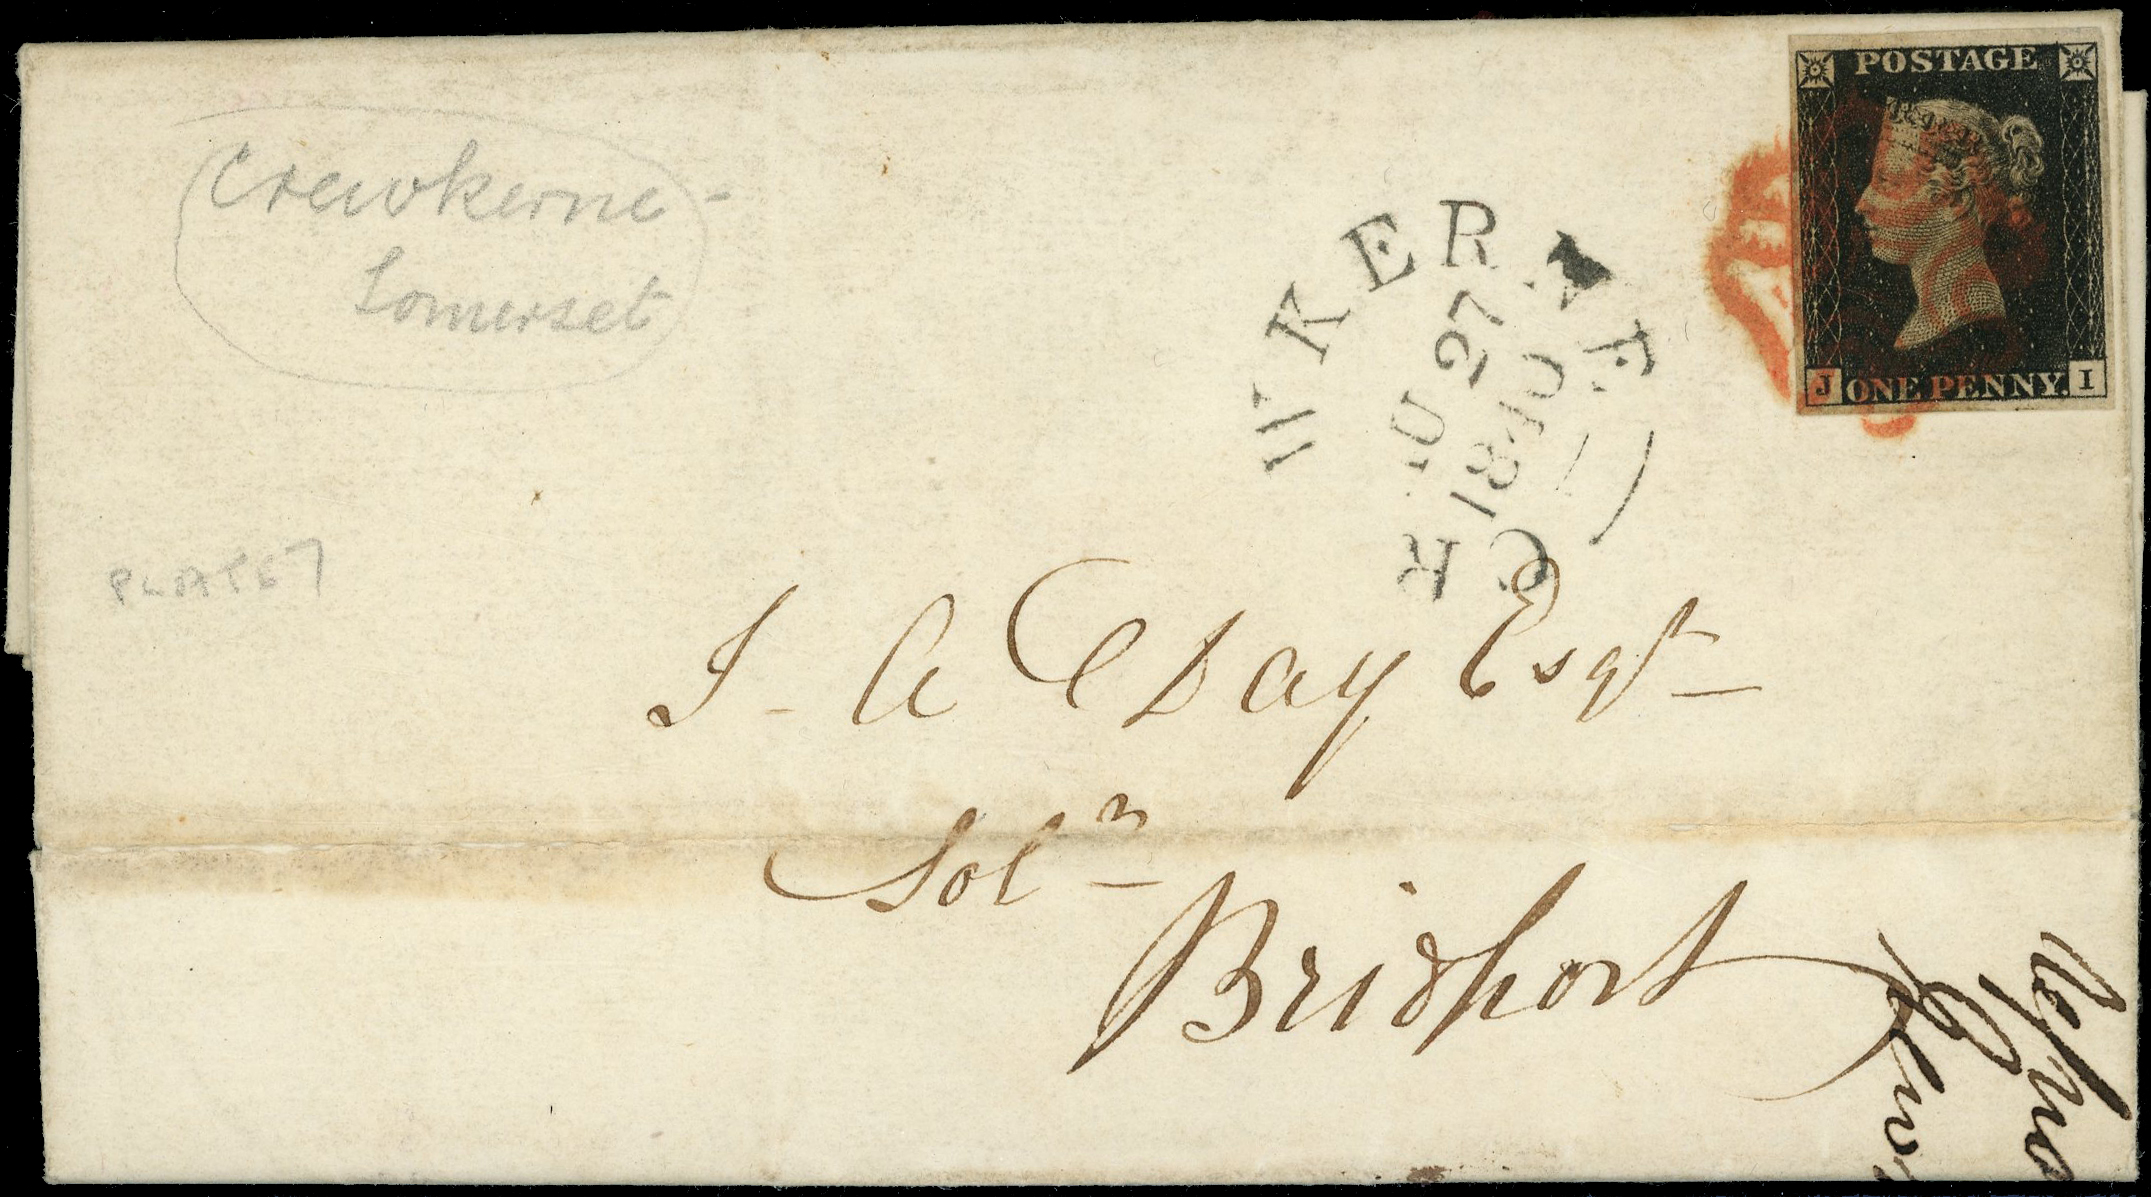 Crewkerne -
Somerset
POSTAGE
J ONE PENNY. I
CR WKERNE
27
1840
PLATE 7
J - A Day Esqr
Solr
Bridport